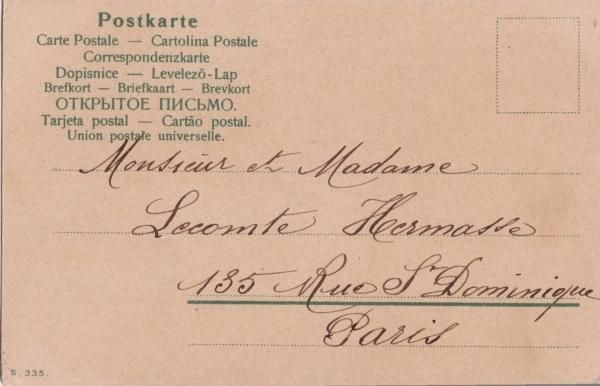 Postkarte
Carte Postale — Cartolina Postale
Correspondenzkarte
Dopisnice — Levelező-Lap
Brefkort — Briefkaart — Brevkort
ОТКРЫТОЕ ПИСЬМО.
Tarjeta postal — Cartão postal.
Union postale universelle.
Monsieur et Madame
Lecomte Hermasse
135 Rue St Dominique
Paris
S. 335.